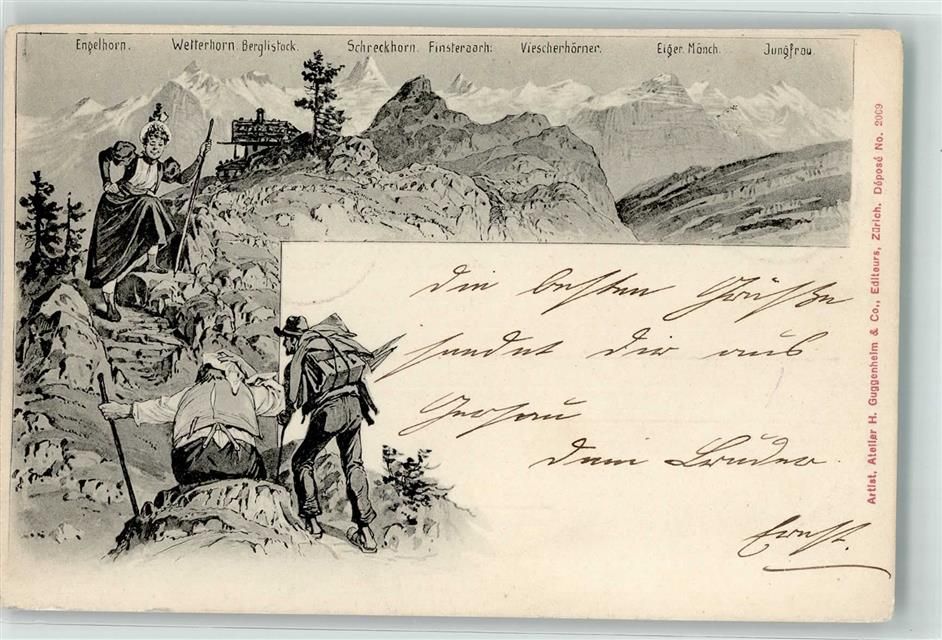 Engelhorn. Wetterhorn. Berglistock. Schreckhorn. Finsteraarh: Viescherhörner. Eiger. Mönch. Jungfrau.
Die besten Grüße
sendet Dir aus
Gersau
Dein Bruder
Ernst.
Artist. Atelier H. Guggenheim & Co., Editeurs, Zürich. Déposé No. 2009